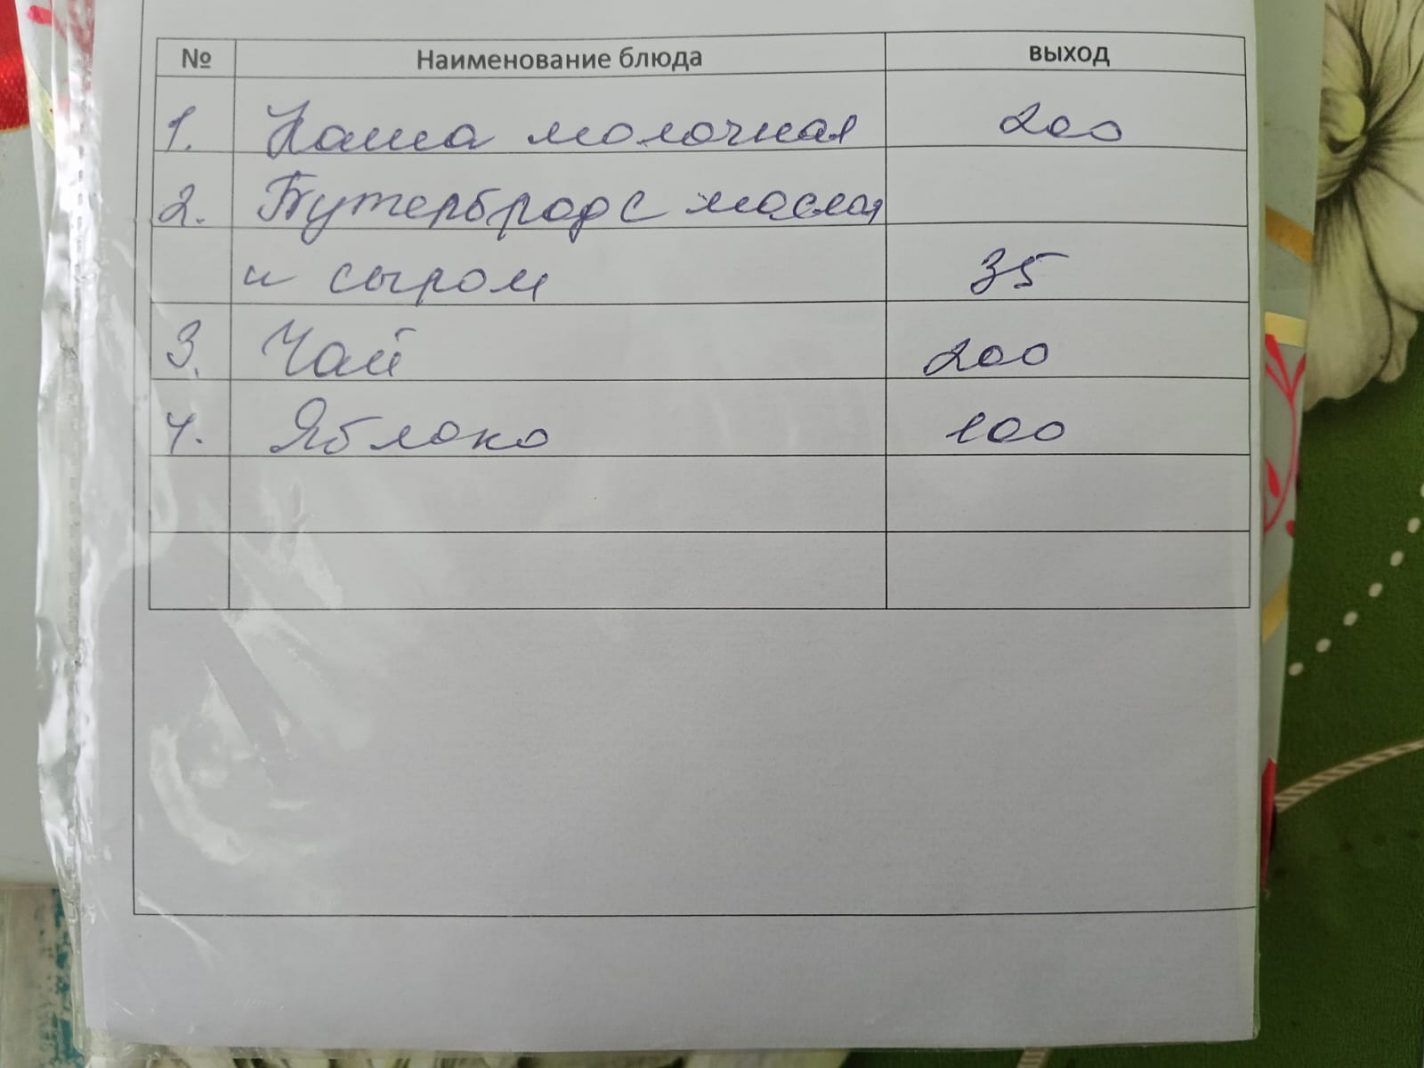 № Наименование блюда выход
1. Каша молочная 200
2. Бутерброд с маслом
и сыром 35
3. Чай 200
4. Яблоко 100